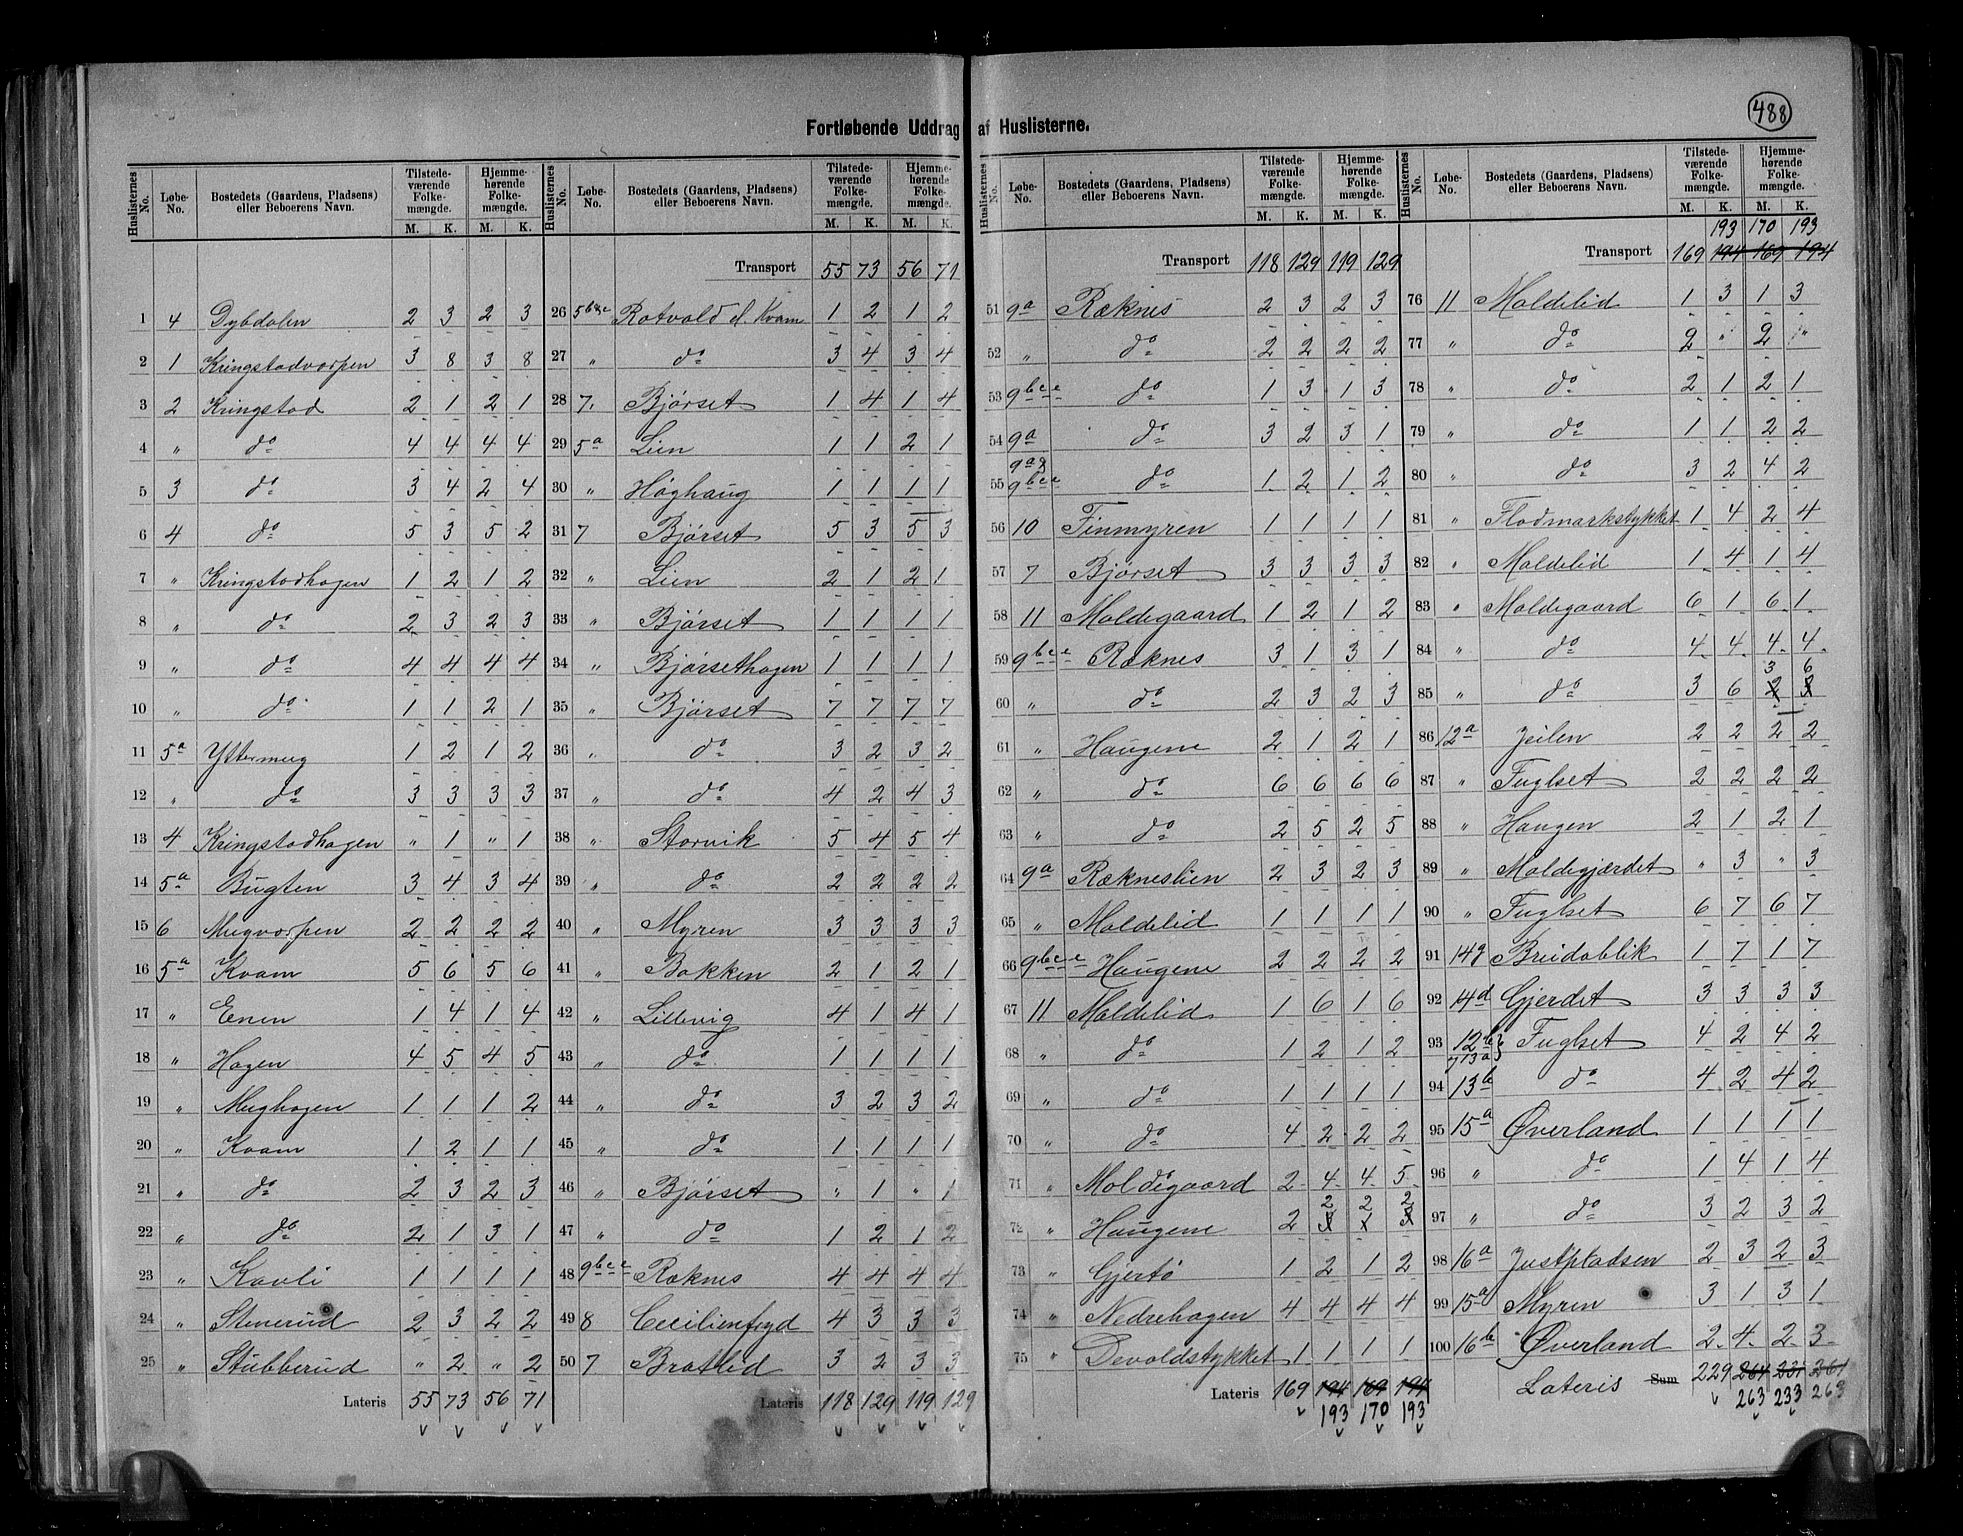 488
Fortløbende Uddrag af Huslisterne.
Huslisternes No. Løbe-No. Bostedets (Gaardens, Pladsens) eller Beboerens Navn. Tilstede-værende Folke-mængde. M. K. Hjemme-hørende Folke-mængde. M. K.
1 4 Dybdalen 2 3 2 3
2 1 Kringstadvorpen 3 8 3 8
3 2 Kringstad 2 1 2 1
4 " do 4 4 4 4
5 3 do 3 4 2 4
6 4 do 5 3 5 2
7 " Kringstadhagen 1 2 1 2
8 " do 2 3 2 3
9 " do 4 4 4 4
10 " do 1 1 2 1
11 5a Yttermug 1 2 1 2
12 " do 3 3 3 3
13 4 Kringstadhagen " 1 " 1
14 5a Bugten 3 4 3 4
15 6 Mugvorpen 2 2 2 2
16 5a Kvam 5 6 5 6
17 " Enen 1 4 1 4
18 " Hagen 4 5 4 5
19 " Mughagen 1 1 1 2
20 " Kvam 1 2 1 1
21 " do 2 3 2 3
22 " do 2 1 3 1
23 " Kavli 1 1 1 1
24 " Stenerud 2 3 2 2
25 " Stubberud " 2 " 2
Lateris 55 73 56 71
Huslisternes No. Løbe-No. Bostedets (Gaardens, Pladsens) eller Beboerens Navn. Tilstede-værende Folke-mængde. M. K. Hjemme-hørende Folke-mængde. M. K.
Transport 55 73 56 71
26 Rotvold el. Kvam 1 2 1 2
27 " do 3 4 3 4
28 7. Bjørset 1 4 1 4
29 5a Lien 1 1 2 1
30 " Høghaug 1 1 1 1
31 7 Bjørset 5 3 5 3
32 " Lien 2 1 2 1
33 " Bjørset 1 1 1 1
34 " Bjørsethagen 1 1 1 1
35 " Bjørset 7 7 7 7
36 " do 3 2 3 2
37 " do 4 2 4 3
38 " Storvik 5 4 5 4
39 " do 2 2 2 2
40 " Myren 3 3 3 3
41 " Bakken 2 1 2 1
42 " Lillevig 4 1 4 1
43 " do 1 1 1 1
44 " do 3 2 3 2
45 " do 1 1 1 1
46 " Bjørset " 1 " 1
47 " do 1 2 1 2
48 9bce Ræknes 4 4 4 4
49 8 Cecilienfryd 4 3 3 3
50 7 Bratlid 3 2 3 3
Lateris 118 129 119 129
Huslisternes No. Løbe-No. Bostedets (Gaardens, Pladsens) eller Beboerens Navn. Tilstede-værende Folke-mængde. M. K. Hjemme-hørende Folke-mængde. M. K.
Transport 118 129 119 129
51 9a Ræknes 2 3 2 3
52 " do 2 2 2 2
53 9bce do 1 3 1 3
54 9a do 3 2 3 1
55 9a & 9bce do 1 2 1 2
56 10 Finmyren 1 1 1 1
57 7 Bjørset 3 3 3 3
58 11 Moldegaard 1 2 1 2
59 9bce Ræknes 3 1 3 1
60 " do 2 3 2 3
61 " Haugene 2 1 2 1
62 " do 6 6 6 6
63 " do 2 5 2 5
64 9a Rækneslien 2 3 2 3
65 " Moldelid 1 1 1 1
66 9bce Haugene 2 2 2 2
67 11 Moldelid 1 6 1 6
68 " do 1 2 1 2
69 " do 1 1 1 1
70 " do 4 2 2 2
71 " Moldegaard 2 4 4 5
2 2 2
72 " Haugene 2 3 1 3
73 " Gjertø 1 2 1 2
74 " Nedrehagen 4 4 4 4
75 " Devoldstykket 1 1 1 1
Lateris 169 194 169 194
193 170 193
Huslisternes No. Løbe-No. Bostedets (Gaardens, Pladsens) eller Beboerens Navn. Tilstede-værende Folke-mængde. M. K. Hjemme-hørende Folke-mængde. M. K.
193 170 193
Transport 169 194 169 194
76 11 Moldelid 1 3 1 3
77 " do 2 " 2 "
78 " do 2 1 2 1
79 " do 1 1 2 2
80 " do 3 2 4 2
81 " Flodmarkstykket 1 4 2 4
82 " Moldelid 1 4 1 4
83 " Moldegaard 6 1 6 1
84 " do 4 4 4 4
3 6
85 " do 3 6 2 3
86 12a Jeilen 2 2 2 2
87 " Fuglset 2 2 2 2
88 " Haugen 2 1 2 1
89 " Moldegjærdet " 3 " 3
90 " Fuglset 6 7 6 7
91 Breidablik 1 7 1 7
92 14d Gjerdet 3 3 3 3
93 12b 13a Fuglset 4 2 4 2
94 13b do 4 2 4 2
95 15a Øverland 1 1 1 1
96 " do 1 4 1 4
97 " do 3 2 3 2
98 16a Justpladsen 2 3 2 3
99 15a Myren 3 1 3 1
100 16b Øverland 2 4 2 3
Lateris Sum 229 264 231 261
263 233 263